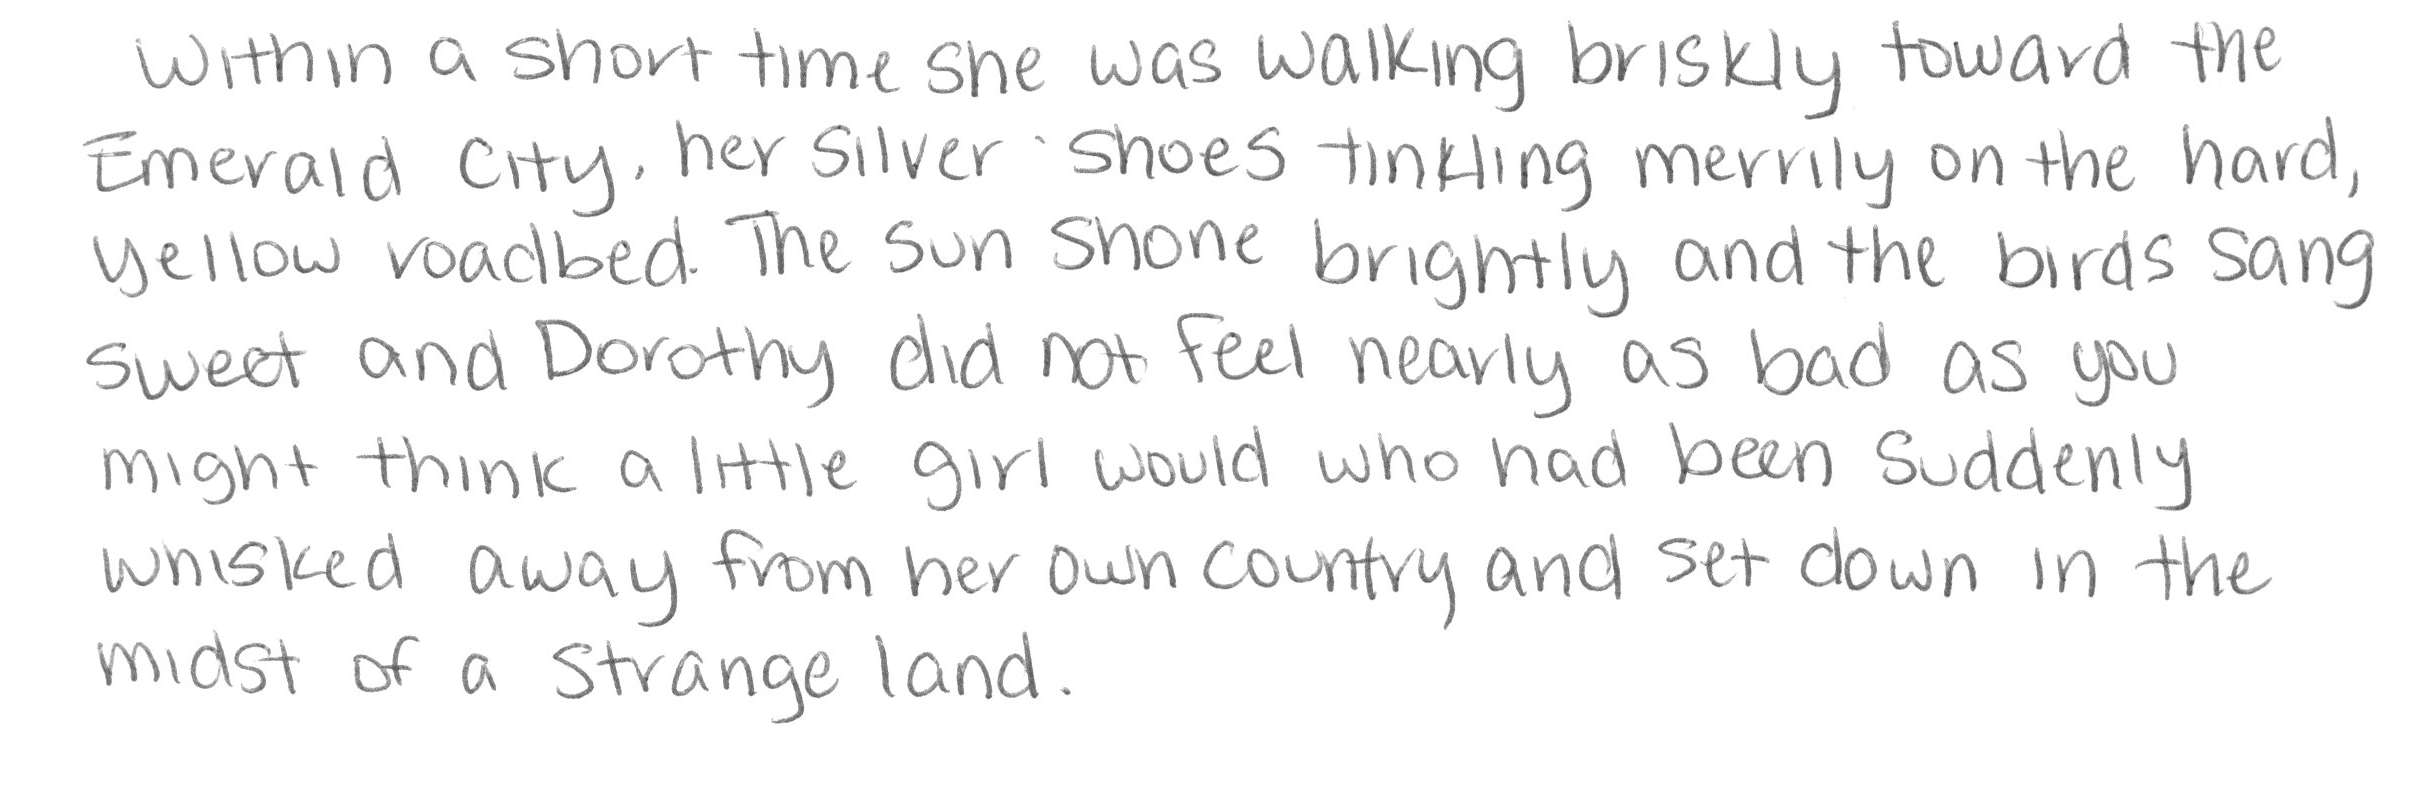 Within a short time she was walking briskly toward the
Emerald City, her silver shoes tinkling merrily on the hard,
yellow roadbed. The sun shone brightly and the birds sang
sweet and Dorothy did not feel nearly as bad as you
might think a little girl would who had been suddenly
whisked away from her own country and set down in the
midst of a strange land.